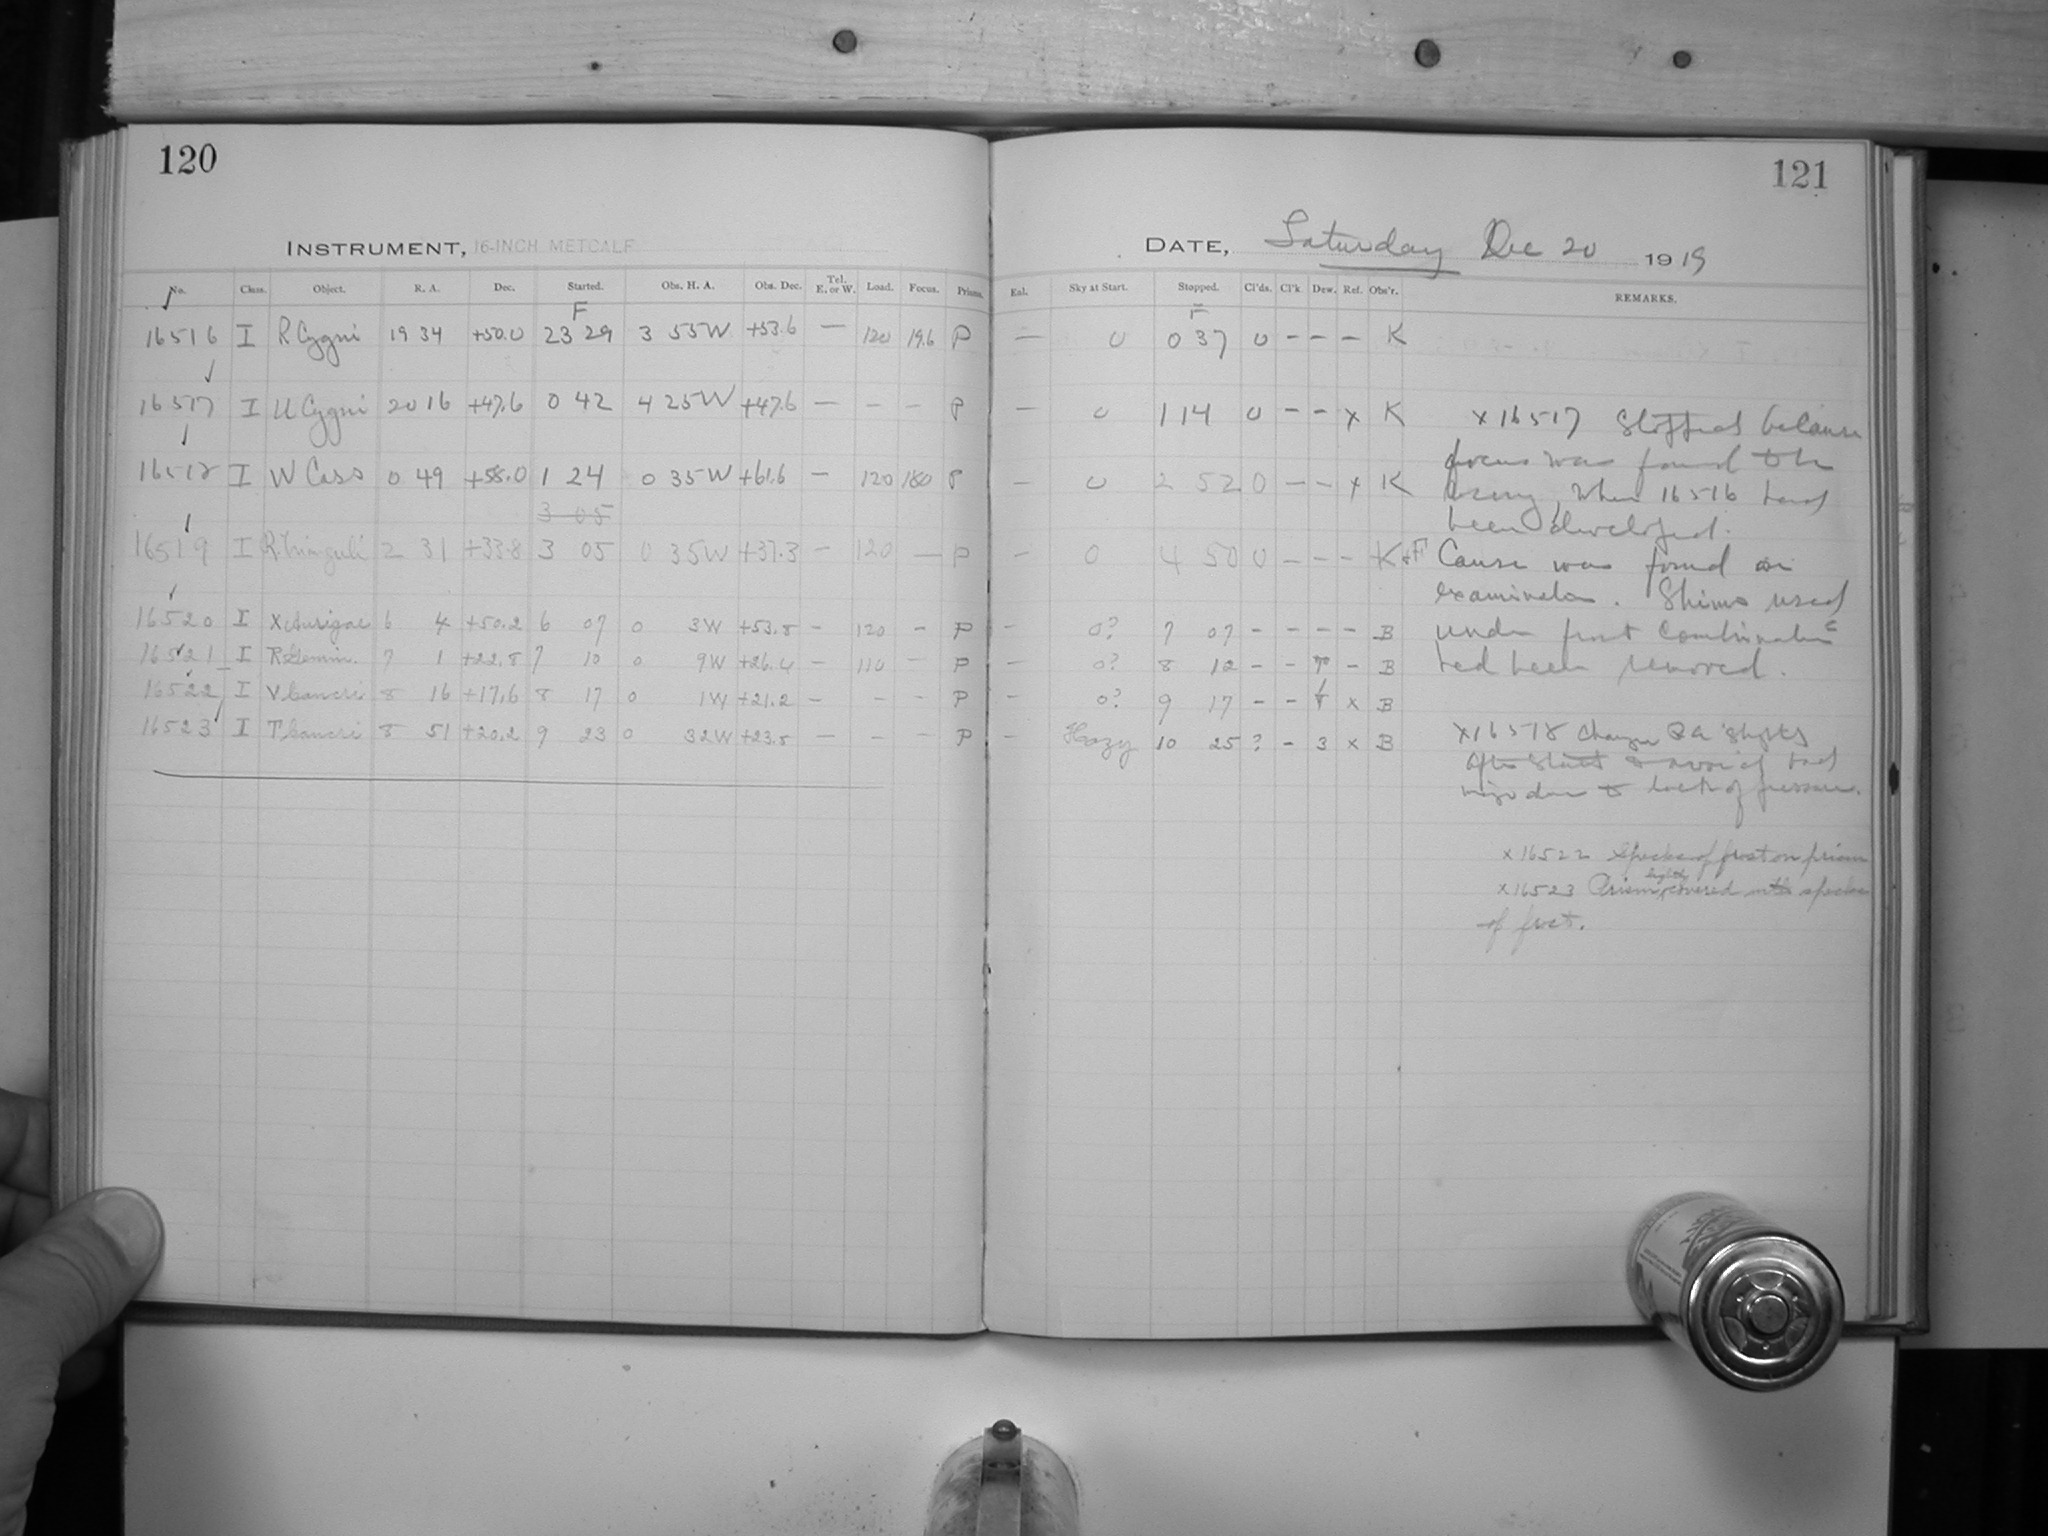 120
121
INSTRUMENT, 16-INCH METCALF
DATE, Saturday Dec 20 1919
No. Class. Object. R. A. Dec. Started. Obs. H. A. Obs. Dec. Tel. E. or W. Load. Focus. Prisms.
Enl. Sky at Start. Stopped. Cl'ds. Cl'k Dew. Ref. Obs'r. REMARKS.
F
F
16516 I R Cygni 19 34 +50.0 23 29 3 55W +53.6 — 120 19.6 P — 0 0 37 0 - - - K
16517 I U Cygni 20 16 +47.6 0 42 4 25W +47.6 — - - P — 0 1 14 0 - - x K
16518 I W Cass 0 49 +58.0 1 24 0 35W +61.6 — 120 180 P — 0 2 52 0 - - x K
3 05
16519 I R. Trianguli 2 31 +33.8 3 05 0 35W +37.3 — 120 — P — 0 4 50 0 - - - K+F
16520 I X Aurigae 6 4 +50.2 6 07 0 3W +53.8 - 120 - P - 0? 7 07 - - - - B
16521 I R Gemin. 7 1 +22.8 7 10 0 9W +26.4 - 110 - P - 0? 8 12 - - - B
16522 I V Cancri 8 16 +17.6 8 17 0 1W +21.2 - - - P - 0? 9 17 - - x B
16523 I T Cancri 8 51 +20.2 9 23 0 32W +23.8 - - - P - Hazy 10 25 ? - 3 x B
x 16517 Stopped because
focus was found to be
when 16516 had
been developed.
Cause was found on
examination. Shims used
under front combination
had been removed.
x 16518 Change R A
after start to avoid bad
due to lack of pressure.
x 16522 Specks of frost on prism
x 16523 Prism lightly covered with specks
of frost.